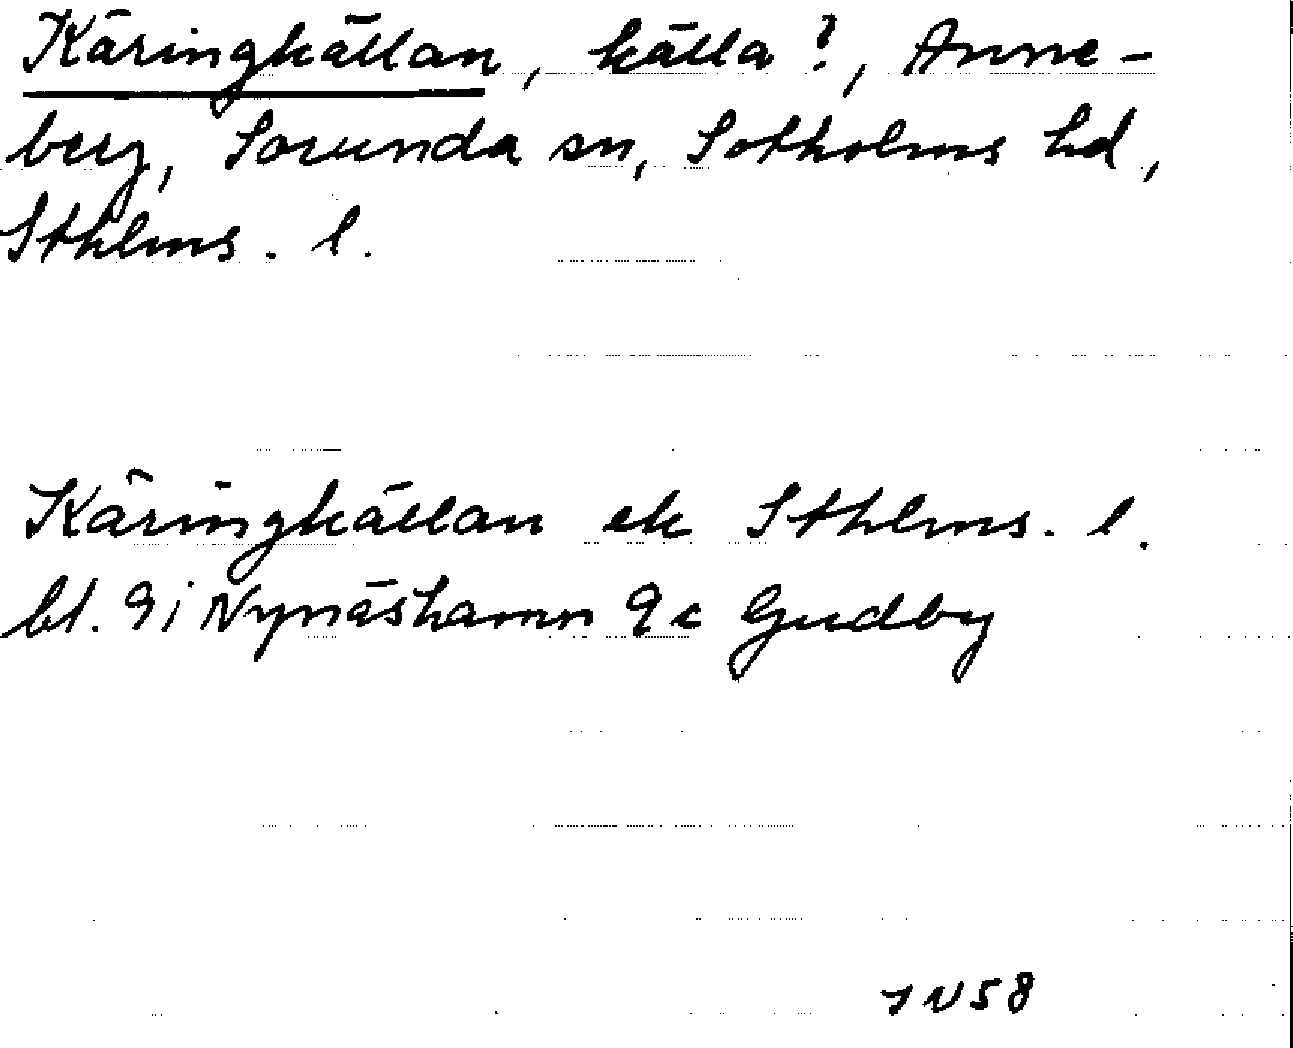 Käringkällan, källa?, Anne-
berg, Sorunda sn, Sotholms hd,
Sthlms. l.
Käringkällan ek Sthlms. l.
bl. 9i Nynäshamn 9c Gudby
IN58